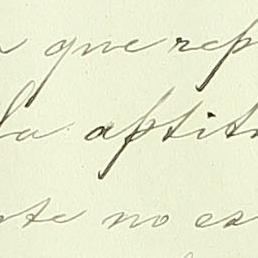 que rep
la aptit
te no es